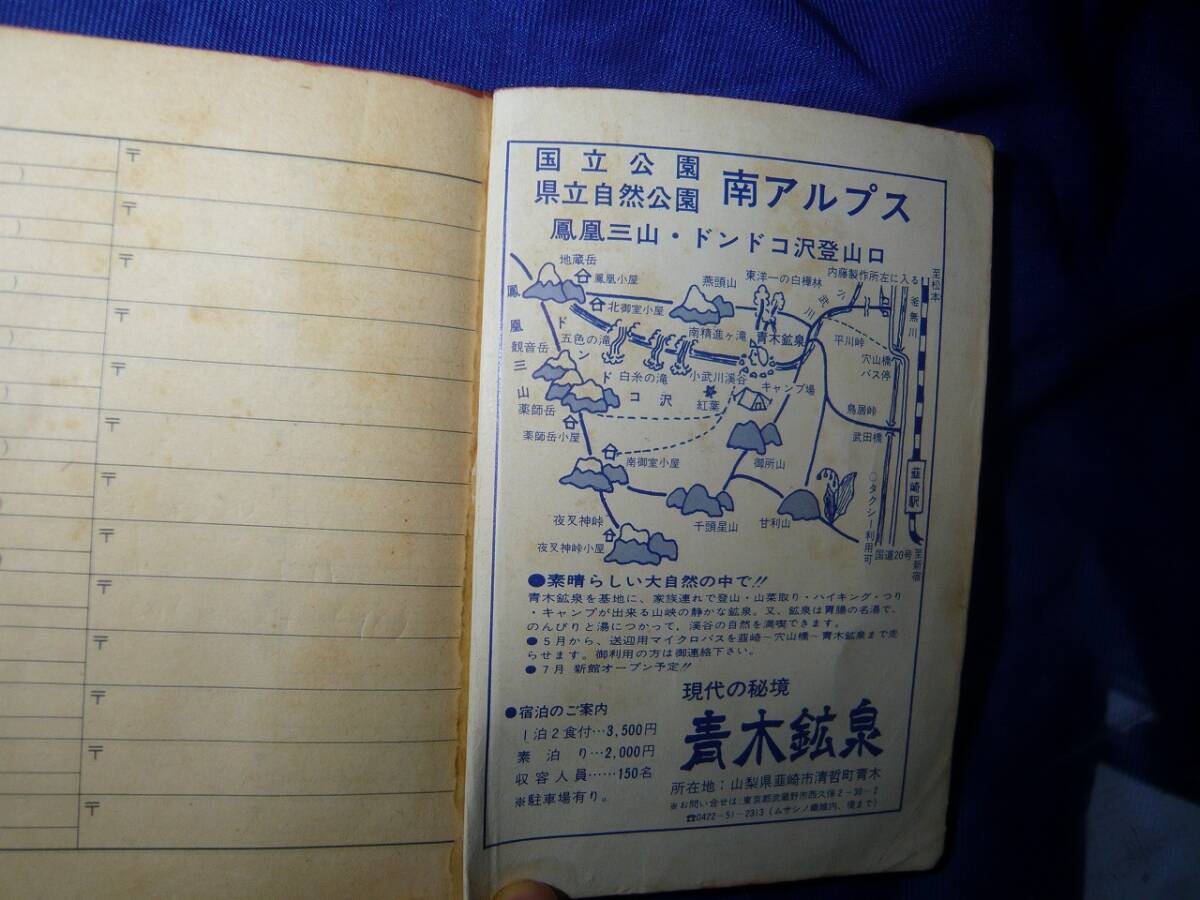 〒
〒
〒
〒
〒
〒
〒
〒
〒
〒
〒
〒
〒
国立公園
県立自然公園
南アルプス
鳳凰三山・ドンドコ沢登山口
地蔵岳
鳳凰小屋
燕頭山
東洋一の白樺林
内藤製作所左に入る
至松本
北御室小屋
小武川
釜無川
鳳凰三山
ドンドコ沢
五色の滝
南精進ヶ滝
青木鉱泉
平川峠
穴山橋
バス停
観音岳
白糸の滝
小武川渓谷
キャンプ場
紅葉
鳥居峠
薬師岳
武田橋
薬師岳小屋
南御室小屋
御所山
韮崎駅
○タクシー利用可
夜叉神峠
千頭星山
甘利山
夜叉神峠小屋
国道20号
至新宿
●素晴らしい大自然の中で!!
青木鉱泉を基地に、家族連れで登山・山菜取り・ハイキング・つり
・キャンプが出来る山峡の静かな鉱泉。又、鉱泉は胃腸の名湯で、
のんびりと湯につかって、渓谷の自然を満喫できます。
●5月から、送迎用マイクロバスを韮崎〜穴山橋〜青木鉱泉まで走
らせます。御利用の方は御連絡下さい。
●7月 新館オープン予定!!
現代の秘境
青木鉱泉
●宿泊のご案内
1泊2食付…3,500円
素泊り…2,000円
収容人員……150名
※駐車場有り。
所在地:山梨県韮崎市清哲町青木
※お問い合せは:東京都武蔵野市西久保2-30-2
☎0422-51-2313(ムサシノ繊維内、堤まで)